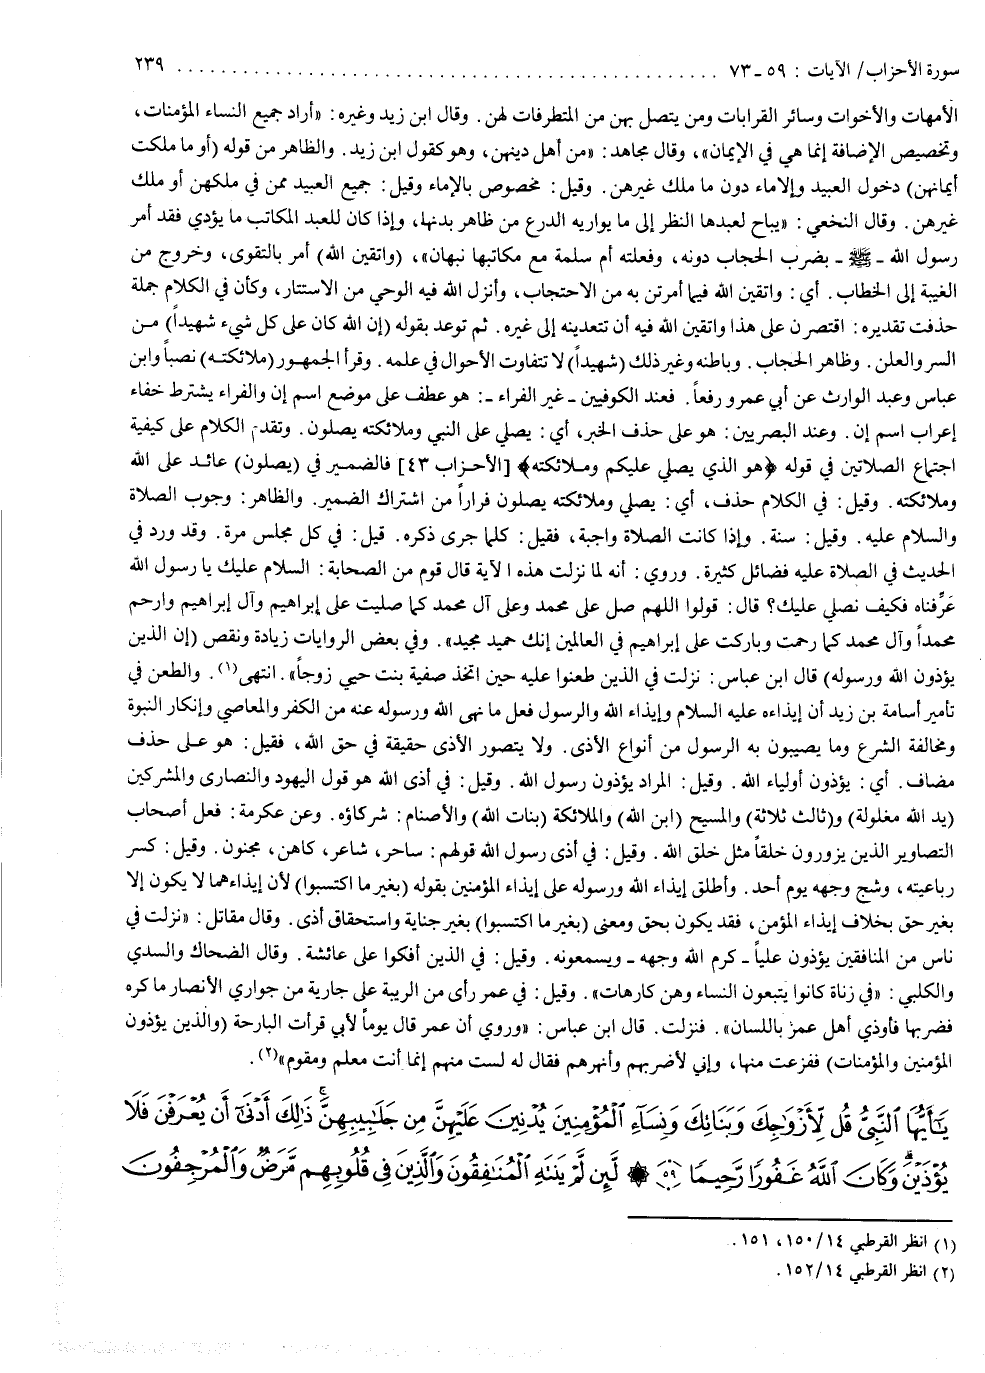 سورة الأحزاب/ الآيات : ٥٩ ـ ٧٣ ........................................ ٢٣٩
الأمهات والأخوات وسائر القرابات ومن يتصل بهن من المتطرفات لهن. وقال ابن زيد وغيره: «أراد جميع النساء المؤمنات،
وتخصيص الإضافة إنما هي في الإيمان»، وقال مجاهد: «من أهل دينهن، وهو كقول ابن زيد. والظاهر من قوله (أو ما ملكت
أيمانهن) دخول العبيد والإماء دون ما ملك غيرهن. وقيل: مخصوص بالإماء وقيل: جميع العبيد ممن في ملكهن أو ملك
غيرهن. وقال النخعي: «يباح لعبدها النظر إلى ما يواريه الدرع من ظاهر بدنها، وإذا كان للعبد المكاتب ما يؤدي فقد أمر
رسول الله ـ ﷺ ـ بضرب الحجاب دونه، وفعلته أم سلمة مع مكاتبها نبهان»، (واتقين الله) أمر بالتقوى، وخروج من
الغيبة إلى الخطاب. أي: واتقين الله فيما أمرتن به من الاحتجاب، وأنزل الله فيه الوحي من الاستتار، وكأن في الكلام جملة
حذفت تقديره: اقتصرن على هذا واتقين الله فيه أن تتعدينه إلى غيره. ثم توعد بقوله (إن الله كان على كل شيء شهيداً) مـن
السر والعلن. وظاهر الحجاب. وباطنه وغير ذلك (شهيداً) لا تتفاوت الأحوال في علمه. وقرأ الجمهـور (ملائكتـه) نصباً وابن
عباس وعبد الوارث عن أبي عمرو رفعاً. فعند الكوفيين ـ غير الفراء ـ: هو عطف على موضع اسم إن والفراء يشترط خفاء
إعراب اسم إن. وعند البصريين: هو على حذف الخبر، أي: يصلي على النبي وملائكته يصلون. وتقدم الكلام على كيفية
اجتماع الصلاتين في قوله ﴿هو الذي يصلي عليكم ومـلائكته﴾ [الأحـزاب ٤٣] فالضمير في (يصلون) عائـد على الله
وملائكته. وقيل: في الكلام حذف، أي: يصلي وملائكته يصلون فراراً من اشتراك الضمير. والظاهر: وجوب الصلاة
والسلام عليه. وقيل: سنة. وإذا كانت الصلاة واجبة، فقيل: كلما جرى ذكره. قيل: في كل مجلس مرة. وقد ورد في
الحديث في الصلاة عليه فضائل كثيرة. وروي: أنه لما نزلت هذه الآية قال قوم من الصحابة: السلام عليك يا رسول الله
عَرَّفناه فكيف نصلي عليك؟ قال: قولوا اللهم صل على محمد وعلى آل محمد كما صليت على إبراهيم وآل إبراهيم وارحم
محمداً وآل محمد كما رحمت وباركت على إبراهيم في العالمين إنك حميد مجيد». وفي بعض الروايات زيادة ونقص (إن الذين
يؤذون الله ورسوله) قال ابن عباس: نزلت في الذين طعنوا عليه حين اتخذ صفية بنت حيي زوجاً». انتهى(١). والطعن في
تأمير أسامة بن زيد أن إيذاءه عليه السلام وإيذاء الله والرسول فعل ما نهى الله ورسوله عنه من الكفر والمعاصي وإنكار النبوة
ومخالفة الشرع وما يصيبون به الرسول من أنواع الأذى. ولا يتصور الأذى حقيقة في حق الله، فقيل: هو عـلى حذف
مضاف. أي: يؤذون أولياء الله. وقيل: المراد يؤذون رسول الله. وقيل: في أذى الله هو قول اليهود والنصارى والمشركين
(يد الله مغلولة) و(ثالث ثلاثة) والمسيح (ابن الله) والملائكة (بنات الله) والأصنام: شركاؤه. وعن عكرمة: فعل أصحاب
التصاوير الذين يزورون خلقاً مثل خلق الله. وقيل: في أذى رسول الله قولهم: ساحر، شاعر، كاهن، مجنون. وقيل: كسر
رباعيته، وشج وجهه يوم أحد. وأطلق إيذاء الله ورسوله على إيذاء المؤمنين بقوله (بغير ما اكتسبوا) لأن إيذاءهما لا يكون إلا
بغير حق بخلاف إيذاء المؤمن، فقد يكون بحق ومعنى (بغير ما اكتسبوا) بغير جناية واستحقاق أذى. وقال مقاتل: «نزلت في
ناس من المنافقين يؤذون علياً ـ كرم الله وجهه ـ ويسمعونه. وقيل: في الذين أفكوا على عائشة. وقال الضحاك والسدي
والكلبي: «في زناة كانوا يتبعون النساء وهن كارهات». وقيل: في عمر رأى من الريبة على جارية من جواري الأنصار ما كره
فضربها فأوذي أهل عمر باللسان». فنزلت. قال ابن عباس: «وروي أن عمر قال يوماً لأبي قرأت البارحة (والذين يؤذون
المؤمنين والمؤمنات) ففزعت منها، وإني لأضربهم وأنهرهم فقال له لست منهم إنما أنت معلم ومقوم»(٢).
يَٰٓأَيُّهَا ٱلنَّبِيُّ قُل لِّأَزْوَٰجِكَ وَبَنَاتِكَ وَنِسَآءِ ٱلْمُؤْمِنِينَ يُدْنِينَ عَلَيْهِنَّ مِن جَلَٰبِيبِهِنَّ ۚ ذَٰلِكَ أَدْنَىٰٓ أَن يُعْرَفْنَ فَلَا
يُؤْذَيْنَ ۗ وَكَانَ ٱللَّهُ غَفُورًا رَّحِيمًا ﴿٥٩﴾ ۞ لَّئِن لَّمْ يَنتَهِ ٱلْمُنَٰفِقُونَ وَٱلَّذِينَ فِي قُلُوبِهِم مَّرَضٌ وَٱلْمُرْجِفُونَ
(١) انظر القرطبي ١٤/ ١٥٠، ١٥١.
(٢) انظر القرطبي ١٤/ ١٥٢.